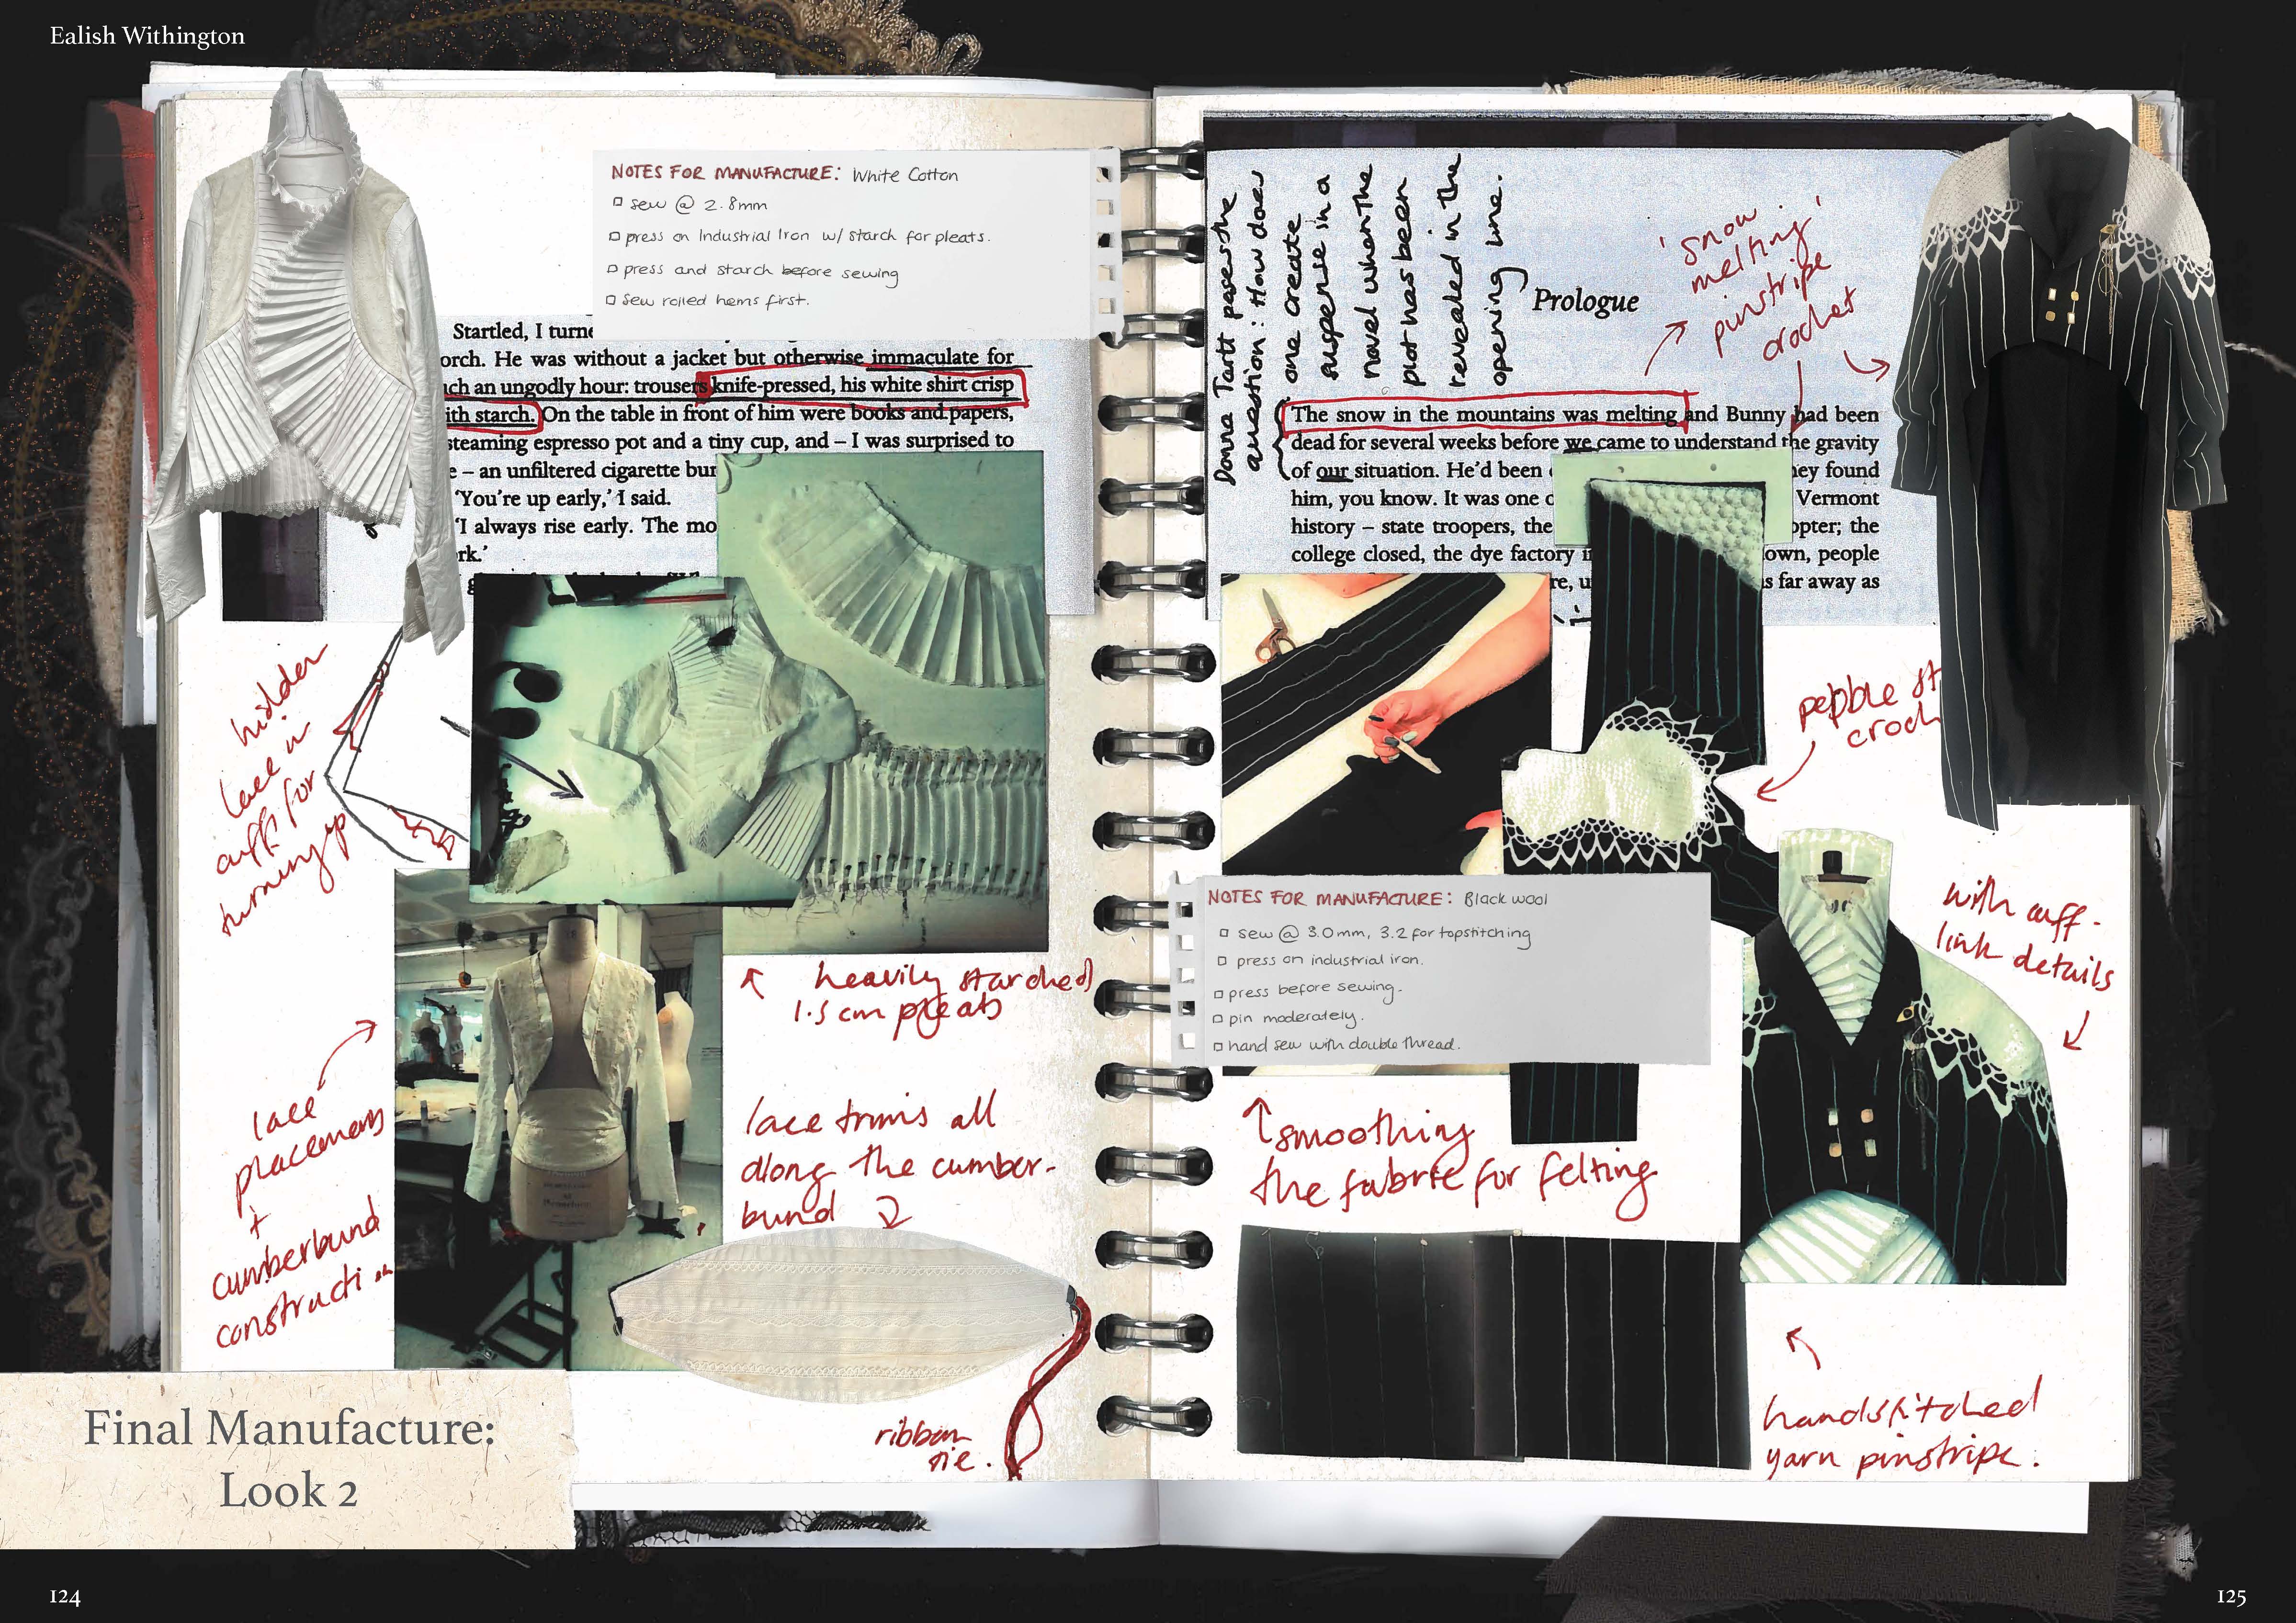 Ealish Withington
NOTES FOR MANUFACTURE: White Cotton
sew @ 2.8mm
press on Industrial Iron w/ starch for pleats.
press and starch before sewing
sew rolled hems first.
Startled, I turne
orch. He was without a jacket but otherwise immaculate for
ch an ungodly hour: trousers knife-pressed, his white shirt crisp
ith starch. On the table in front of him were books and papers,
steaming espresso pot and a tiny cup, and – I was surprised to
e – an unfiltered cigarette bur
‘You’re up early,’ I said.
‘I always rise early. The mo
rk.’
hidden
lace in
cuff for
turning up
heavily starched
1.5cm pleats
lace
placement
+
cumberbund
construction
lace trims all
along the cumber-
bund
ribbon
tie.
Final Manufacture:
Look 2
124
Donna Tartt poses the
question: How does
one create
suspense in a
novel when the
plot has been
revealed in the
opening line.
Prologue
'snow
melting'
pinstripe
crochet
The snow in the mountains was melting and Bunny had been
dead for several weeks before we came to understand the gravity
of our situation. He’d been
hey found
him, you know. It was one o
Vermont
history – state troopers, the
opter; the
college closed, the dye factory i
own, people
re, u
s far away as
pebble st
croch
NOTES FOR MANUFACTURE: Black wool
sew @ 3.0mm, 3.2 for topstitching
press on industrial iron.
press before sewing.
pin moderately.
hand sew with double thread.
with cuff-
link details
smoothing
the fabric for felting
handstitched
yarn pinstripe.
125